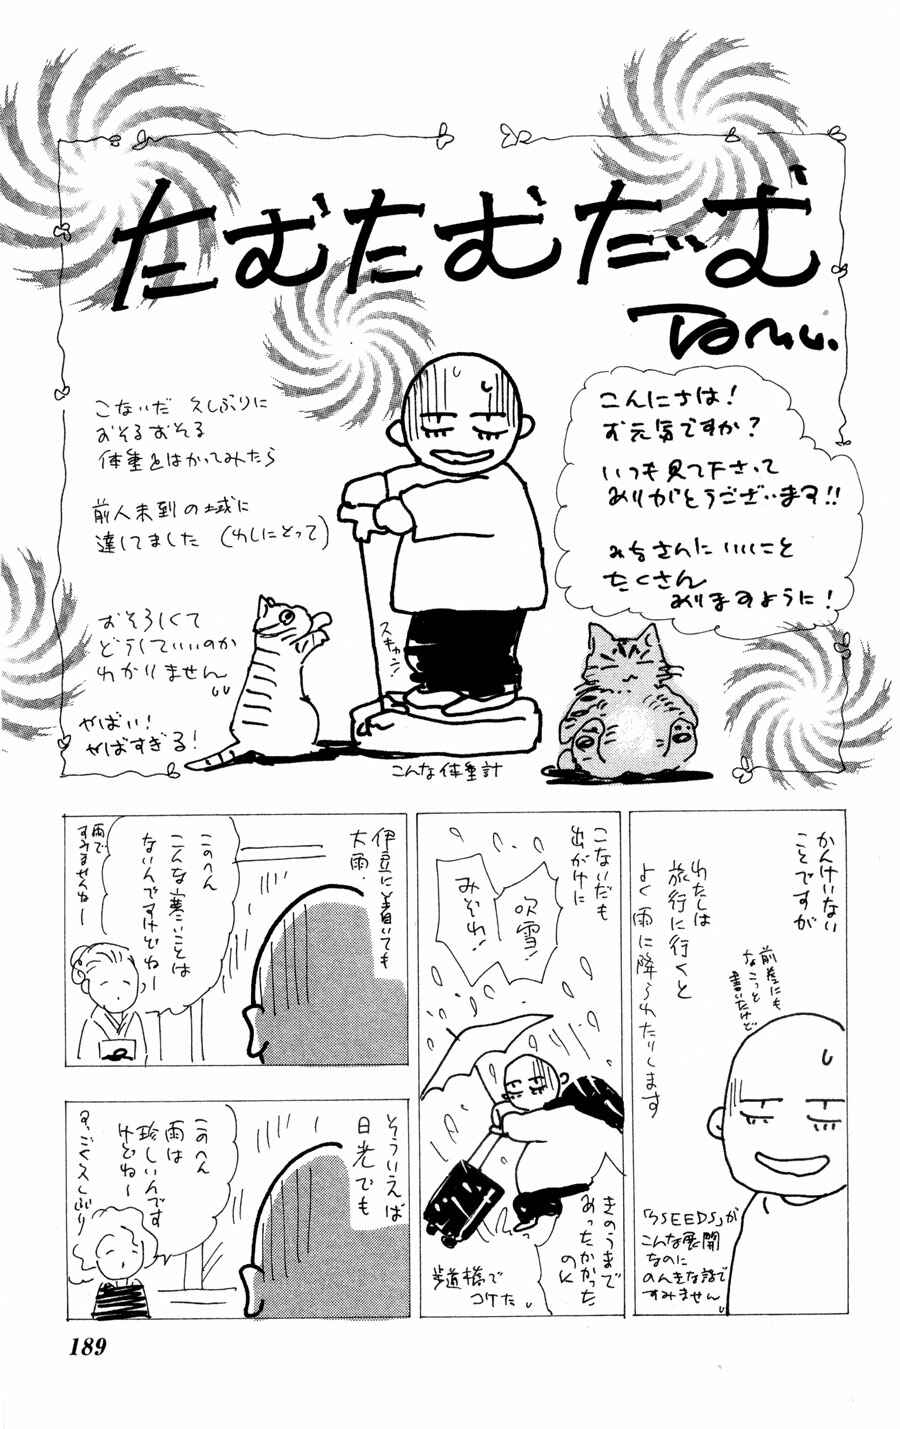 たむたむだーむ
Tamu.
こんにちは!
お元気ですか?
いつも見て下さって
ありがとうございます!!
みなさんに いいこと
たくさん
ありますように!
こないだ 久しぶりに
おそるおそる
体重をはかってみたら
前人未到の域に
達してました (わしにとって)
おそろしくて
どうしていいのか
わかりません
やばい!
やばすぎる!
スキャン!
こんな体重計
かんけいない
ことですが
わたしは
旅行に行くと
よく雨に降られたりします
前巻にも
なこっと
書いたけど
「7SEEDS」が
こんな展開
なのに
のんきな話で
すみません
こないだも
出がけに
吹雪!
みぞれ!
きのうまで
あったかかった
のに
歩道橋で
コケた
伊豆に着いても
大雨.
このへん
こんな寒いことは
ないんですけどねー
雨で
すみませんねー
そういえば
日光でも
このへん
雨は
珍しいんです
けどねー
すっごく久しぶり
189